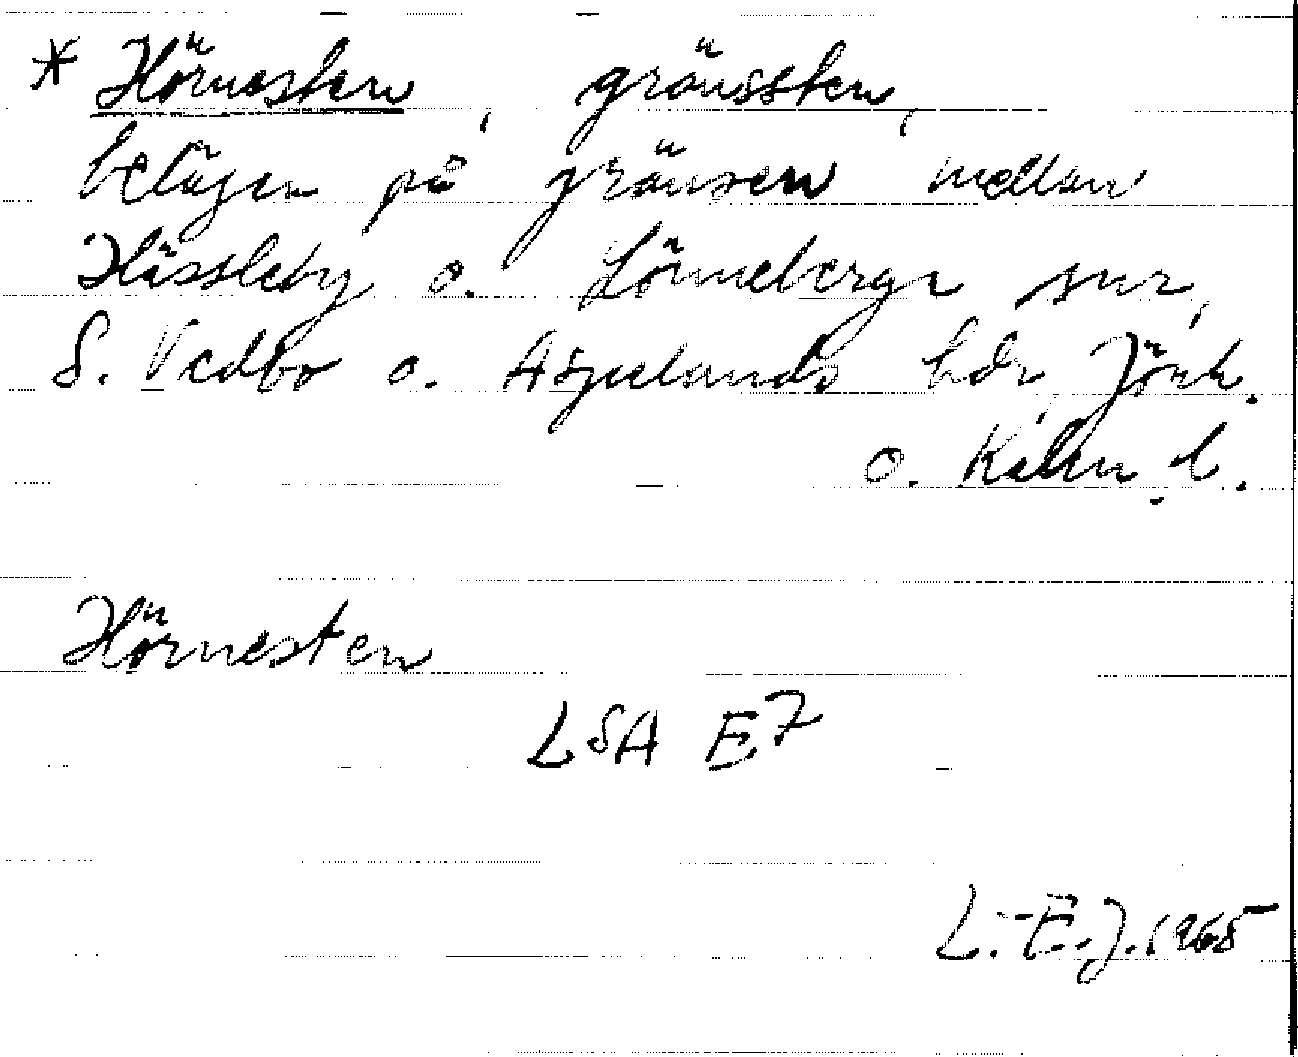 * Hörnesten, gränssten,
belägen på gränsen mellan
Hässleby o. Lönneberga snr,
S. Vedbo o. Aspelands hdr, Jönk.
o. Kalm. l.
Hörnesten
LSA E7
L.-E.J. 1965